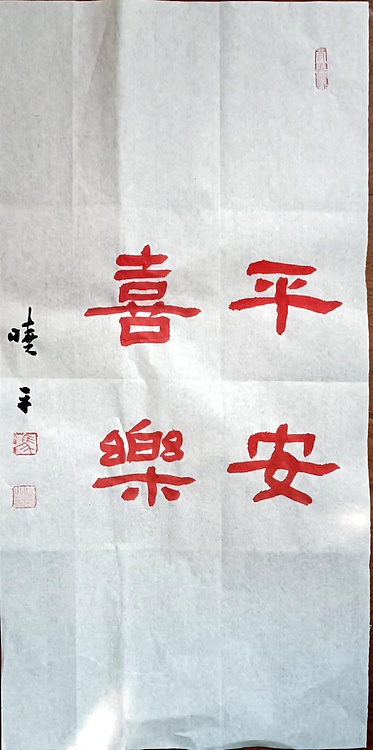 平安
喜樂
曉平